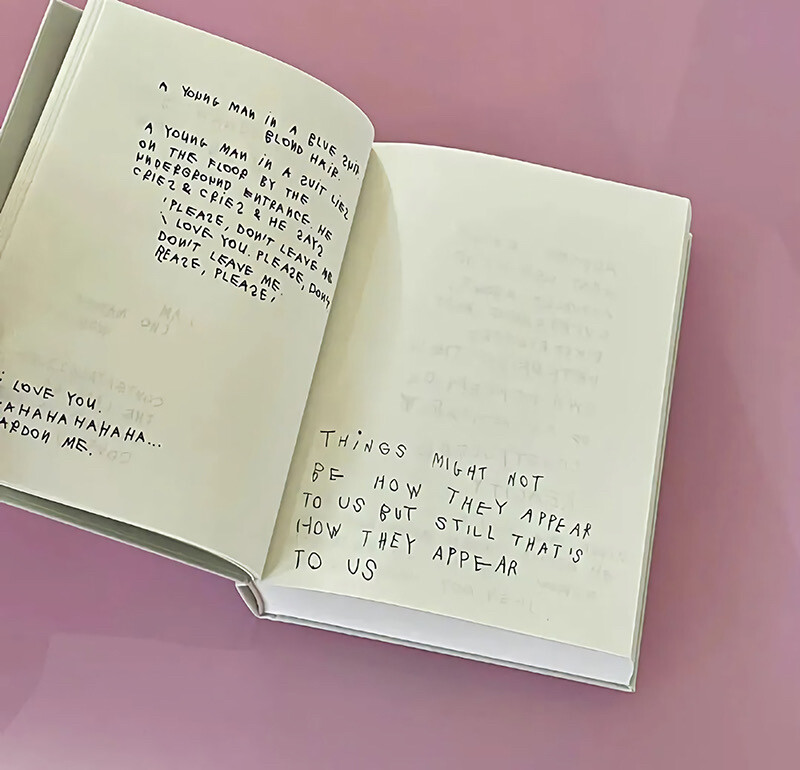 A YOUNG MAN IN A BLUE
BLOND HAIR.
A YOUNG MAN IN A SUIT LIES
ON THE FLOOR BY THE
UNDERGROUND ENTRANCE. HE
CRIES & CRIES & HE SAYS
'PLEASE, DON'T LEAVE ME
I LOVE YOU. PLEASE, DON'T
DON'T LEAVE ME.
PEASE, PLEASE,'
I LOVE YOU.
AHAHAHAHAHA...
ARDON ME.
THiNGS MIGHT NOT
BE HOW THEY APPEAR
TO US BUT STILL THAT'S
HOW THEY APPEAR
TO US